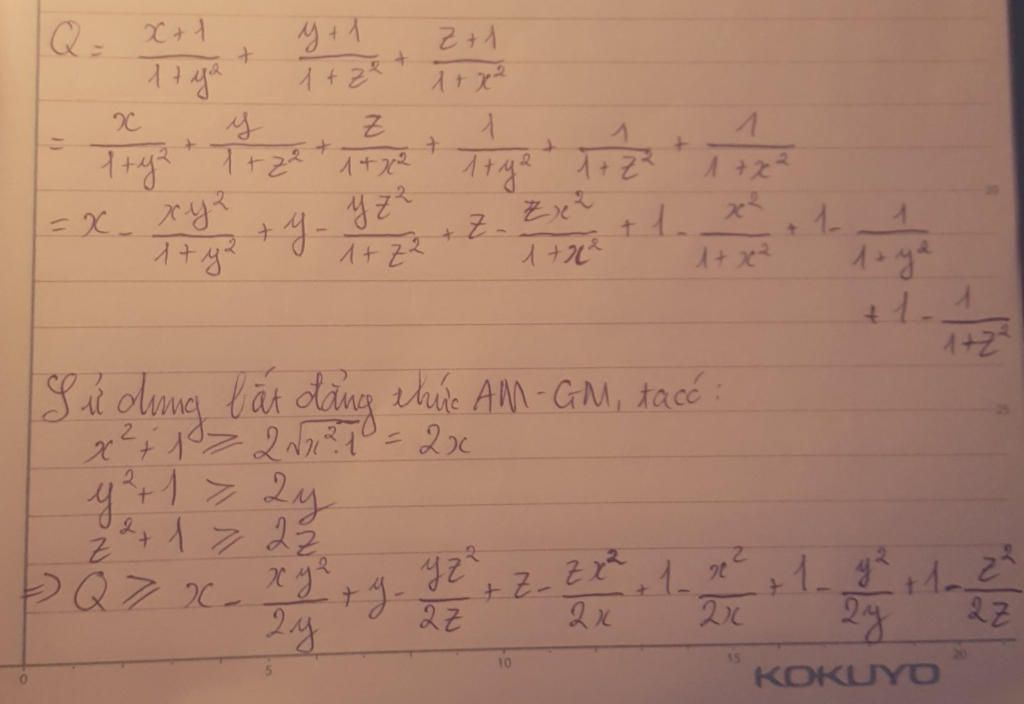 Q = \frac{x+1}{1+y^2} + \frac{y+1}{1+z^2} + \frac{z+1}{1+x^2}
= \frac{x}{1+y^2} + \frac{y}{1+z^2} + \frac{z}{1+x^2} + \frac{1}{1+y^2} + \frac{1}{1+z^2} + \frac{1}{1+x^2}
= x - \frac{xy^2}{1+y^2} + y - \frac{yz^2}{1+z^2} + z - \frac{zx^2}{1+x^2} + 1 - \frac{x^2}{1+x^2} + 1 - \frac{1}{1+y^2}
+ 1 - \frac{1}{1+z^2}
Sử dụng bất đẳng thức AM-GM, ta có:
x^2 + 1 ⩾ 2\sqrt{x^2.1} = 2x
y^2 + 1 ⩾ 2y
z^2 + 1 ⩾ 2z
⇒ Q ⩾ x - \frac{xy^2}{2y} + y - \frac{yz^2}{2z} + z - \frac{zx^2}{2x} + 1 - \frac{x^2}{2x} + 1 - \frac{y^2}{2y} + 1 - \frac{z^2}{2z}
0 5 10 15 20
KOKUYO
20
25